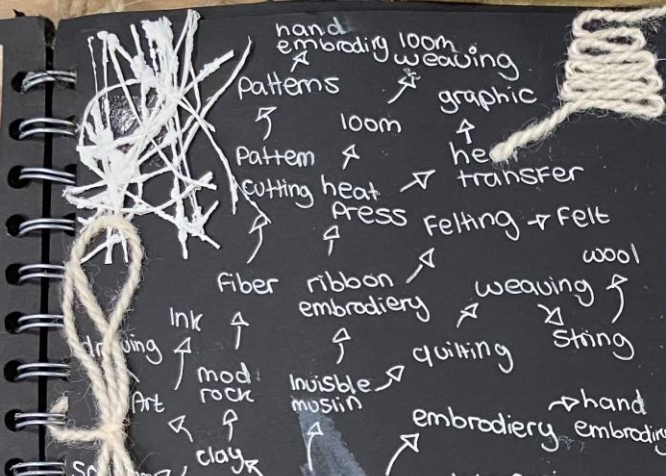 hand
embrodiry
loom
weaving
patterns
graphic
loom
pattern
cutting
heat
transfer
heat
press
Felting
Felt
wool
Fiber
ribbon
embrodiery
weaving
Ink
String
drawing
quilting
mod
rock
Art
Invisble
muslin
embrodiery
hand
clay